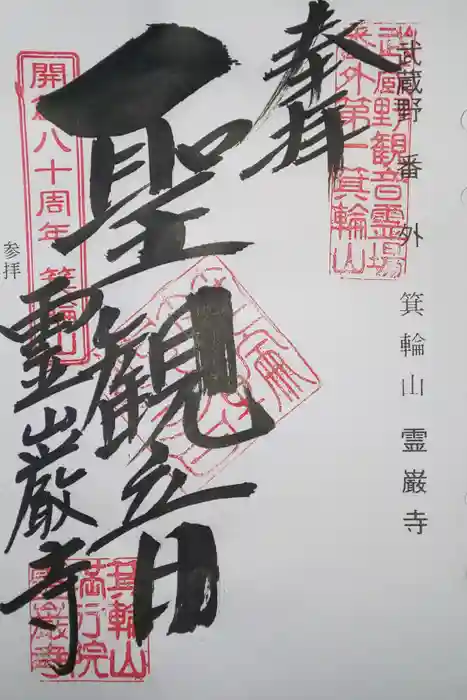 武蔵野 番外 箕輪山 霊巌寺
武蔵野観音霊場
番外第一箕輪山
奉拝
聖観音
霊巌寺
開創八十周年 箕輪山
参拝
箕輪山
満行院
霊巌寺